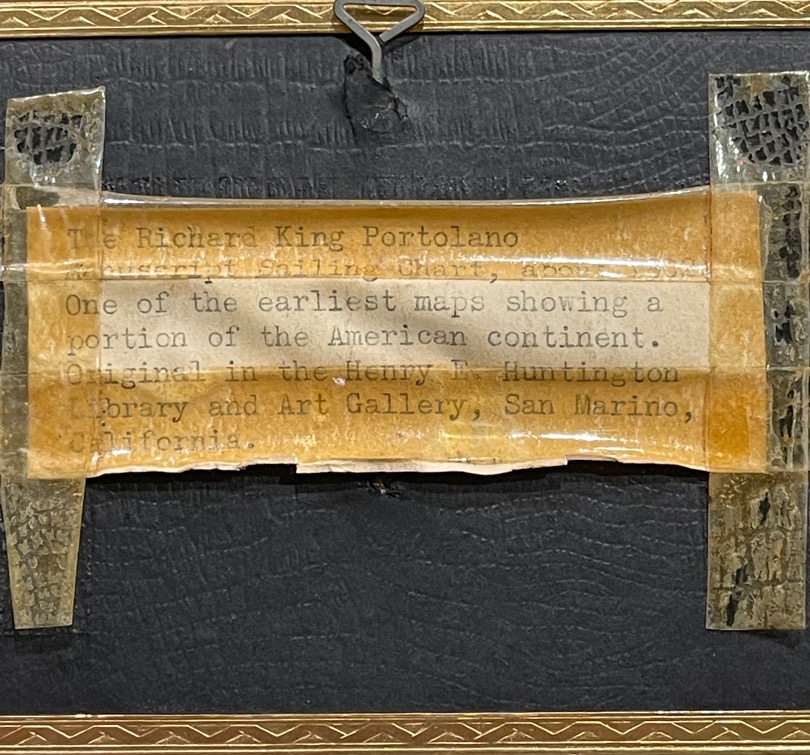 The Richard King Portolano
Manuscript Sailing Chart, about
One of the earliest maps showing a
portion of the American continent.
Original in the Henry E. Huntington
Library and Art Gallery, San Marino,
California.